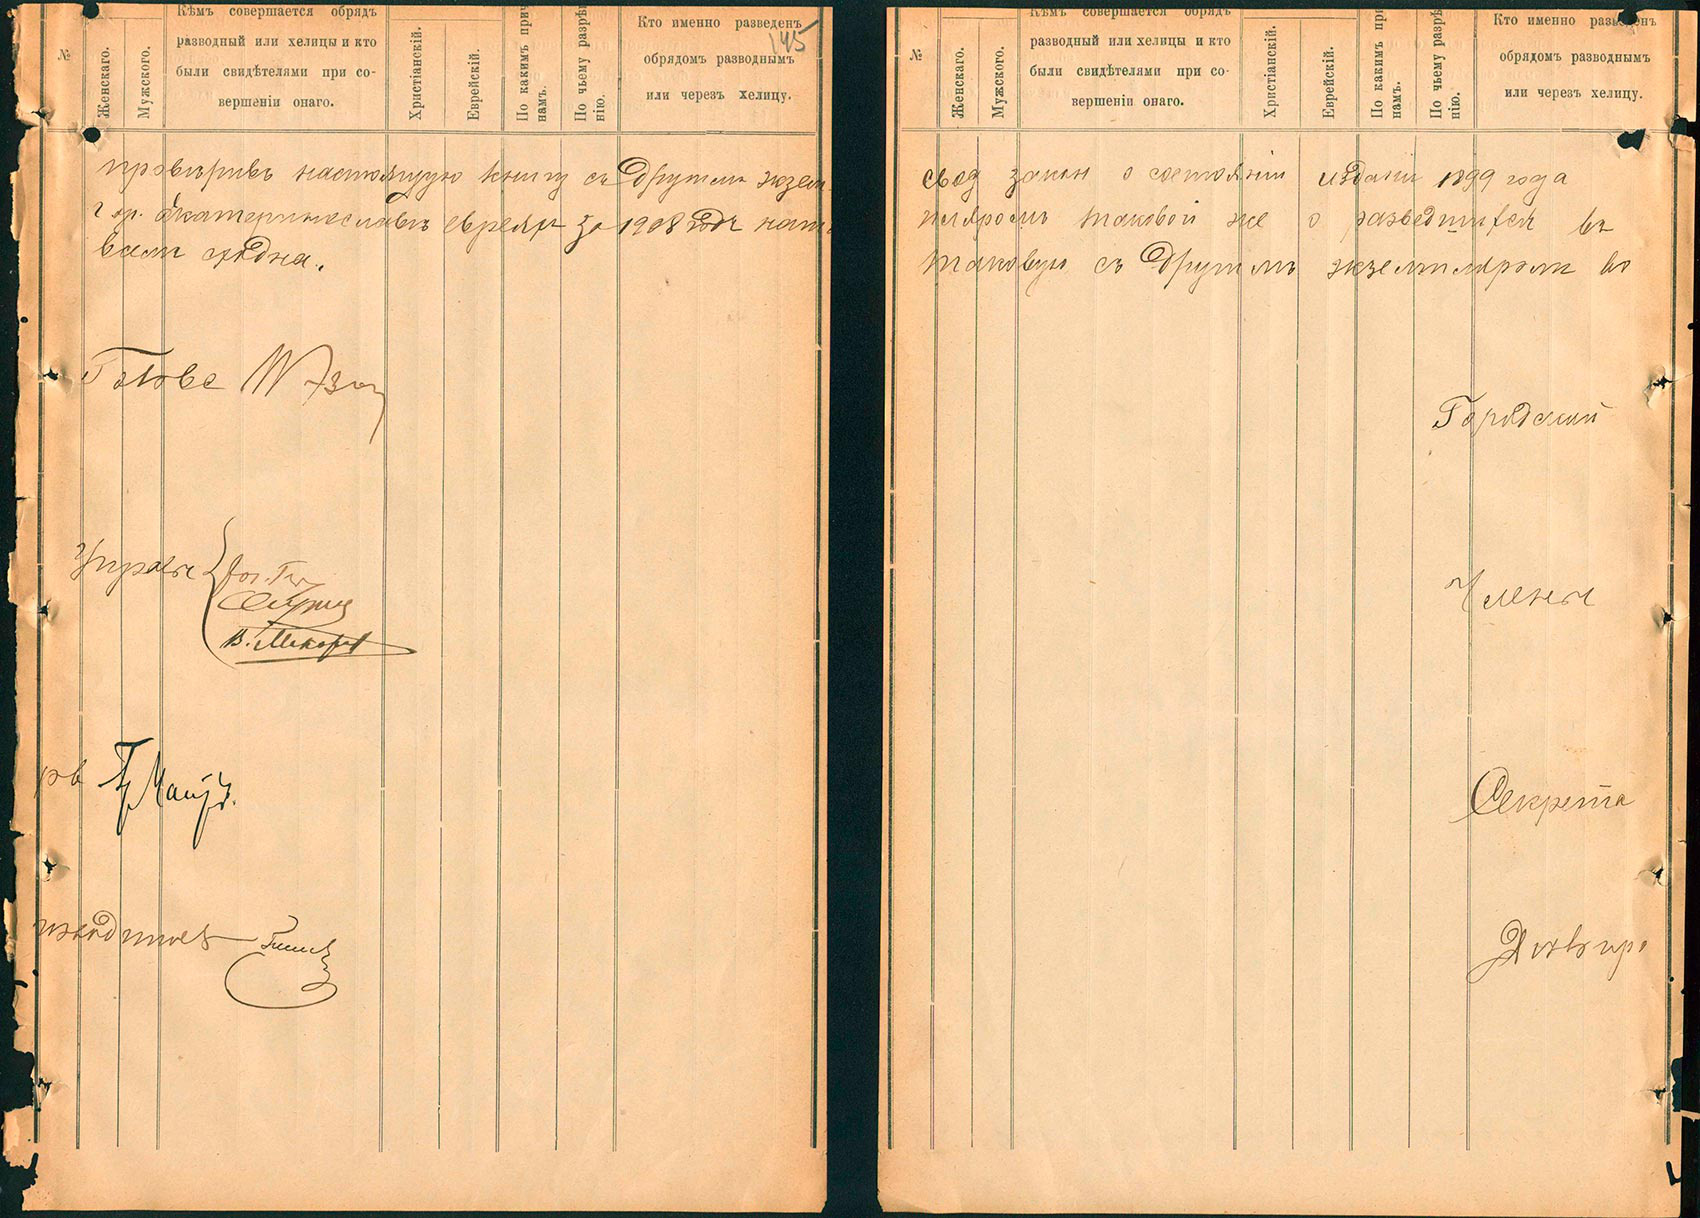 145
№
Женскаго.
Мужского.
Кѣмъ совершается обрядъ
разводный или хелицы и кто
были свидѣтелями при со-
вершеніи онаго.
Христіанскій.
Еврейскій.
По какимъ прич
намъ.
По чьему разрѣ
нію.
Кто именно разведенъ
обрядомъ разводнымъ
или черезъ хелицу.
провѣривъ настоящую книгу съ другимъ экзем-
гор. Екатеринославѣ евреяхъ за 1908 годъ
сходна.
Голова
Управы
В.
ръ
изводитель
№
Женскаго.
Мужского.
Кѣмъ совершается обрядъ
разводный или хелицы и кто
были свидѣтелями при со-
вершеніи онаго.
Христіанскій.
Еврейскій.
По какимъ при
намъ.
По чьему разрѣ
нію.
Кто именно разведенъ
обрядомъ разводнымъ
или черезъ хелицу.
свод закон о состояніи издан 1899 года
пляромъ таковой же о разведшихся въ
таковую съ другимъ экземпляром
Городской
Члены
Секрета
Дѣлопро